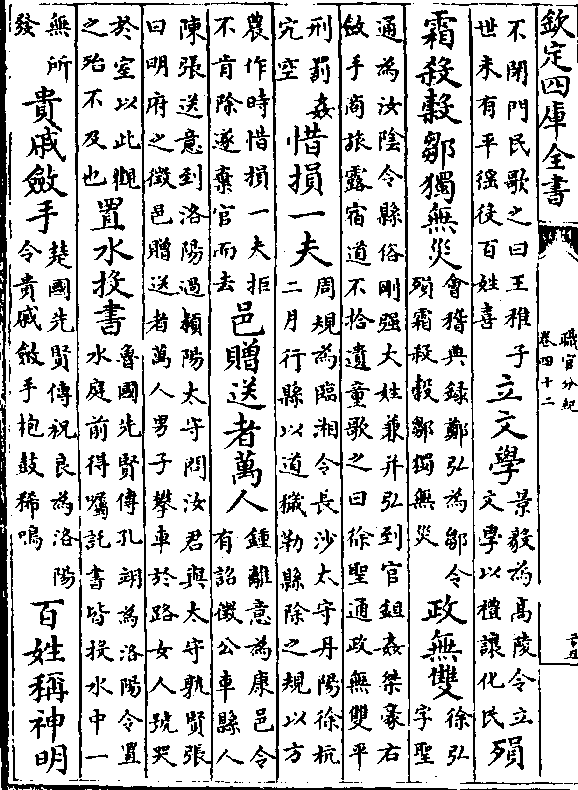 欽定四庫全書
職官分紀
卷四十二
不閉門民歌之曰王稚子
世未有平徭役百姓喜
立文學
景毅為高陵令立
文學以禮讓化民
殞
霜殺糓鄒獨無災
會稽典録鄭弘為鄒令
殞霜殺糓鄒獨無災
政無雙
徐弘
字聖
通為汝陰令縣俗剛强大姓兼并弘到官鉏姦桀豪右
斂手商旅露宿道不拾遺童歌之曰徐聖通政無雙平
刑罰姦
宄空
惜損一夫
周規為臨湘令長沙太守丹陽徐杭
二月行縣以道穢勒縣除之規以方
農作時惜損一夫拒
不肯除遂棄官而去
邑贈送者萬人
鍾離意為康邑令
有詔徵公車縣人
陳張送意到洛陽過潁陽太守問汝君與太守孰賢張
曰明府之徵邑贈送者萬人男子攀車於路女人號哭
於室以此觀
之殆不及也
置水投書
魯國先賢傳孔翊為洛陽令置
水庭前得囑託書皆投水中一
無所
發
貴戚斂手
楚國先賢傳祝良為洛陽
令貴戚斂手枹鼓稀鳴
百姓稱神明